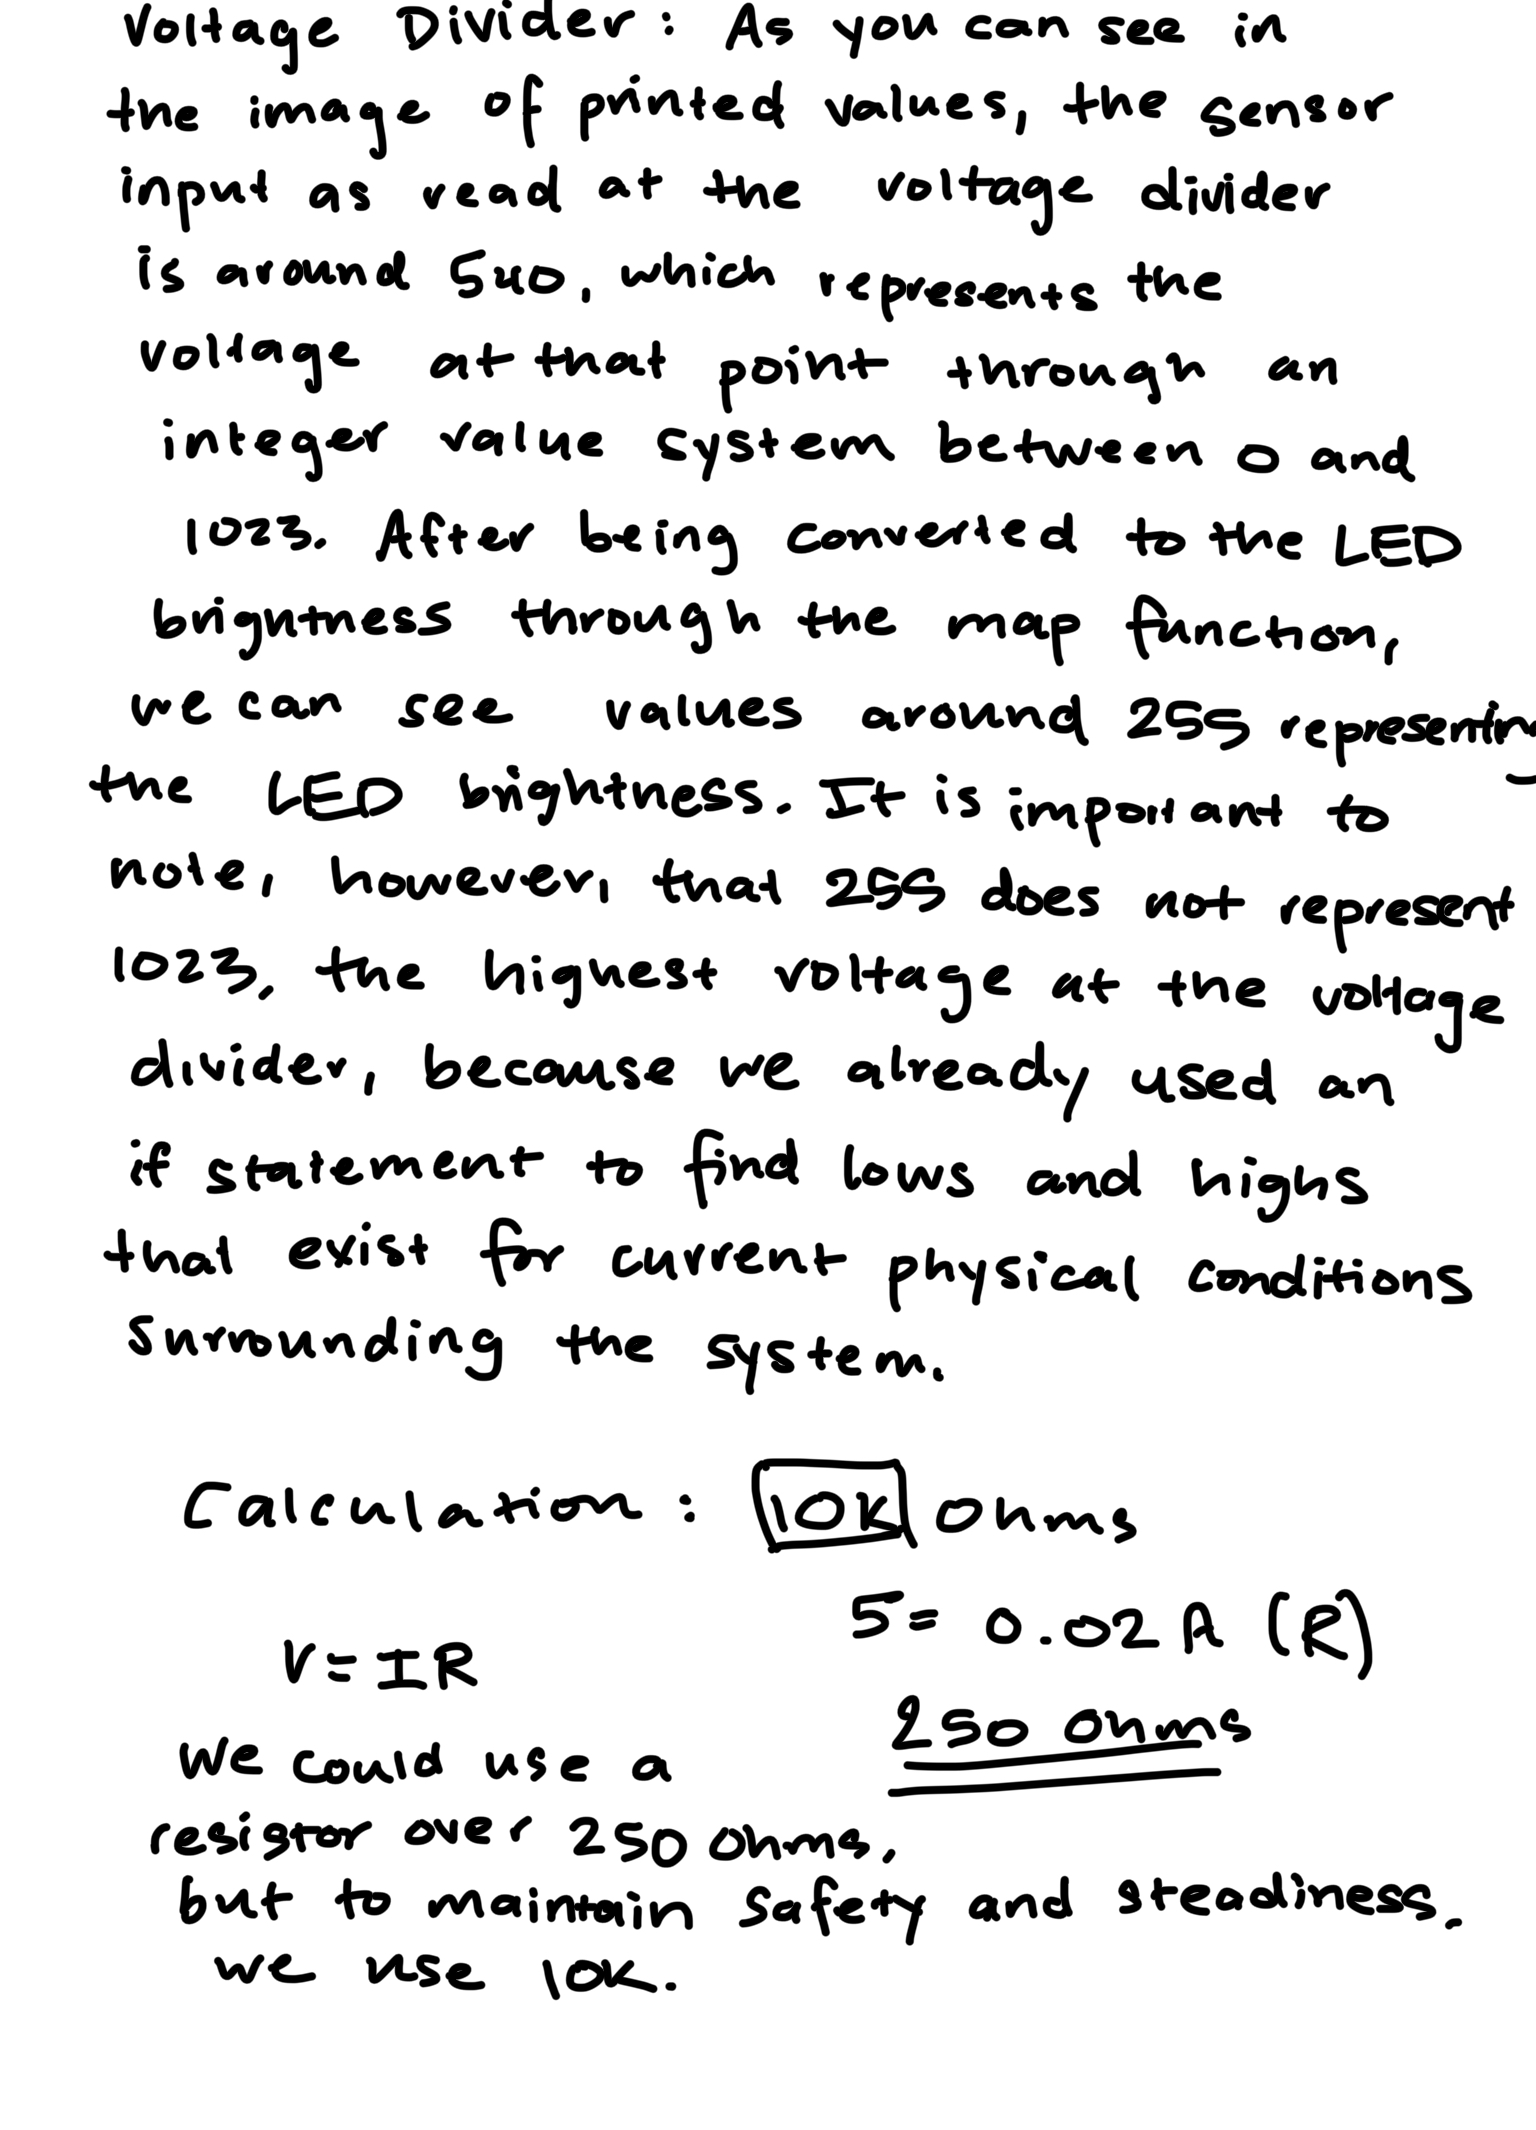 Voltage Divider: As you can see in
the image of printed values, the sensor
input as read at the voltage divider
is around 540, which represents the
voltage at that point through an
integer value system between 0 and
1023. After being converted to the LED
brightness through the map function,
we can see values around 255 representing
the LED brightness. It is important to
note, however, that 255 does not represent
1023, the highest voltage at the voltage
divider, because we already used an
if statement to find lows and highs
that exist for current physical conditions
surrounding the system.
Calculation: 10K ohms
5 = 0.02 A (R)
V = IR
250 ohms
We could use a
resistor over 250 ohms,
but to maintain safety and steadiness.
we use 10K.